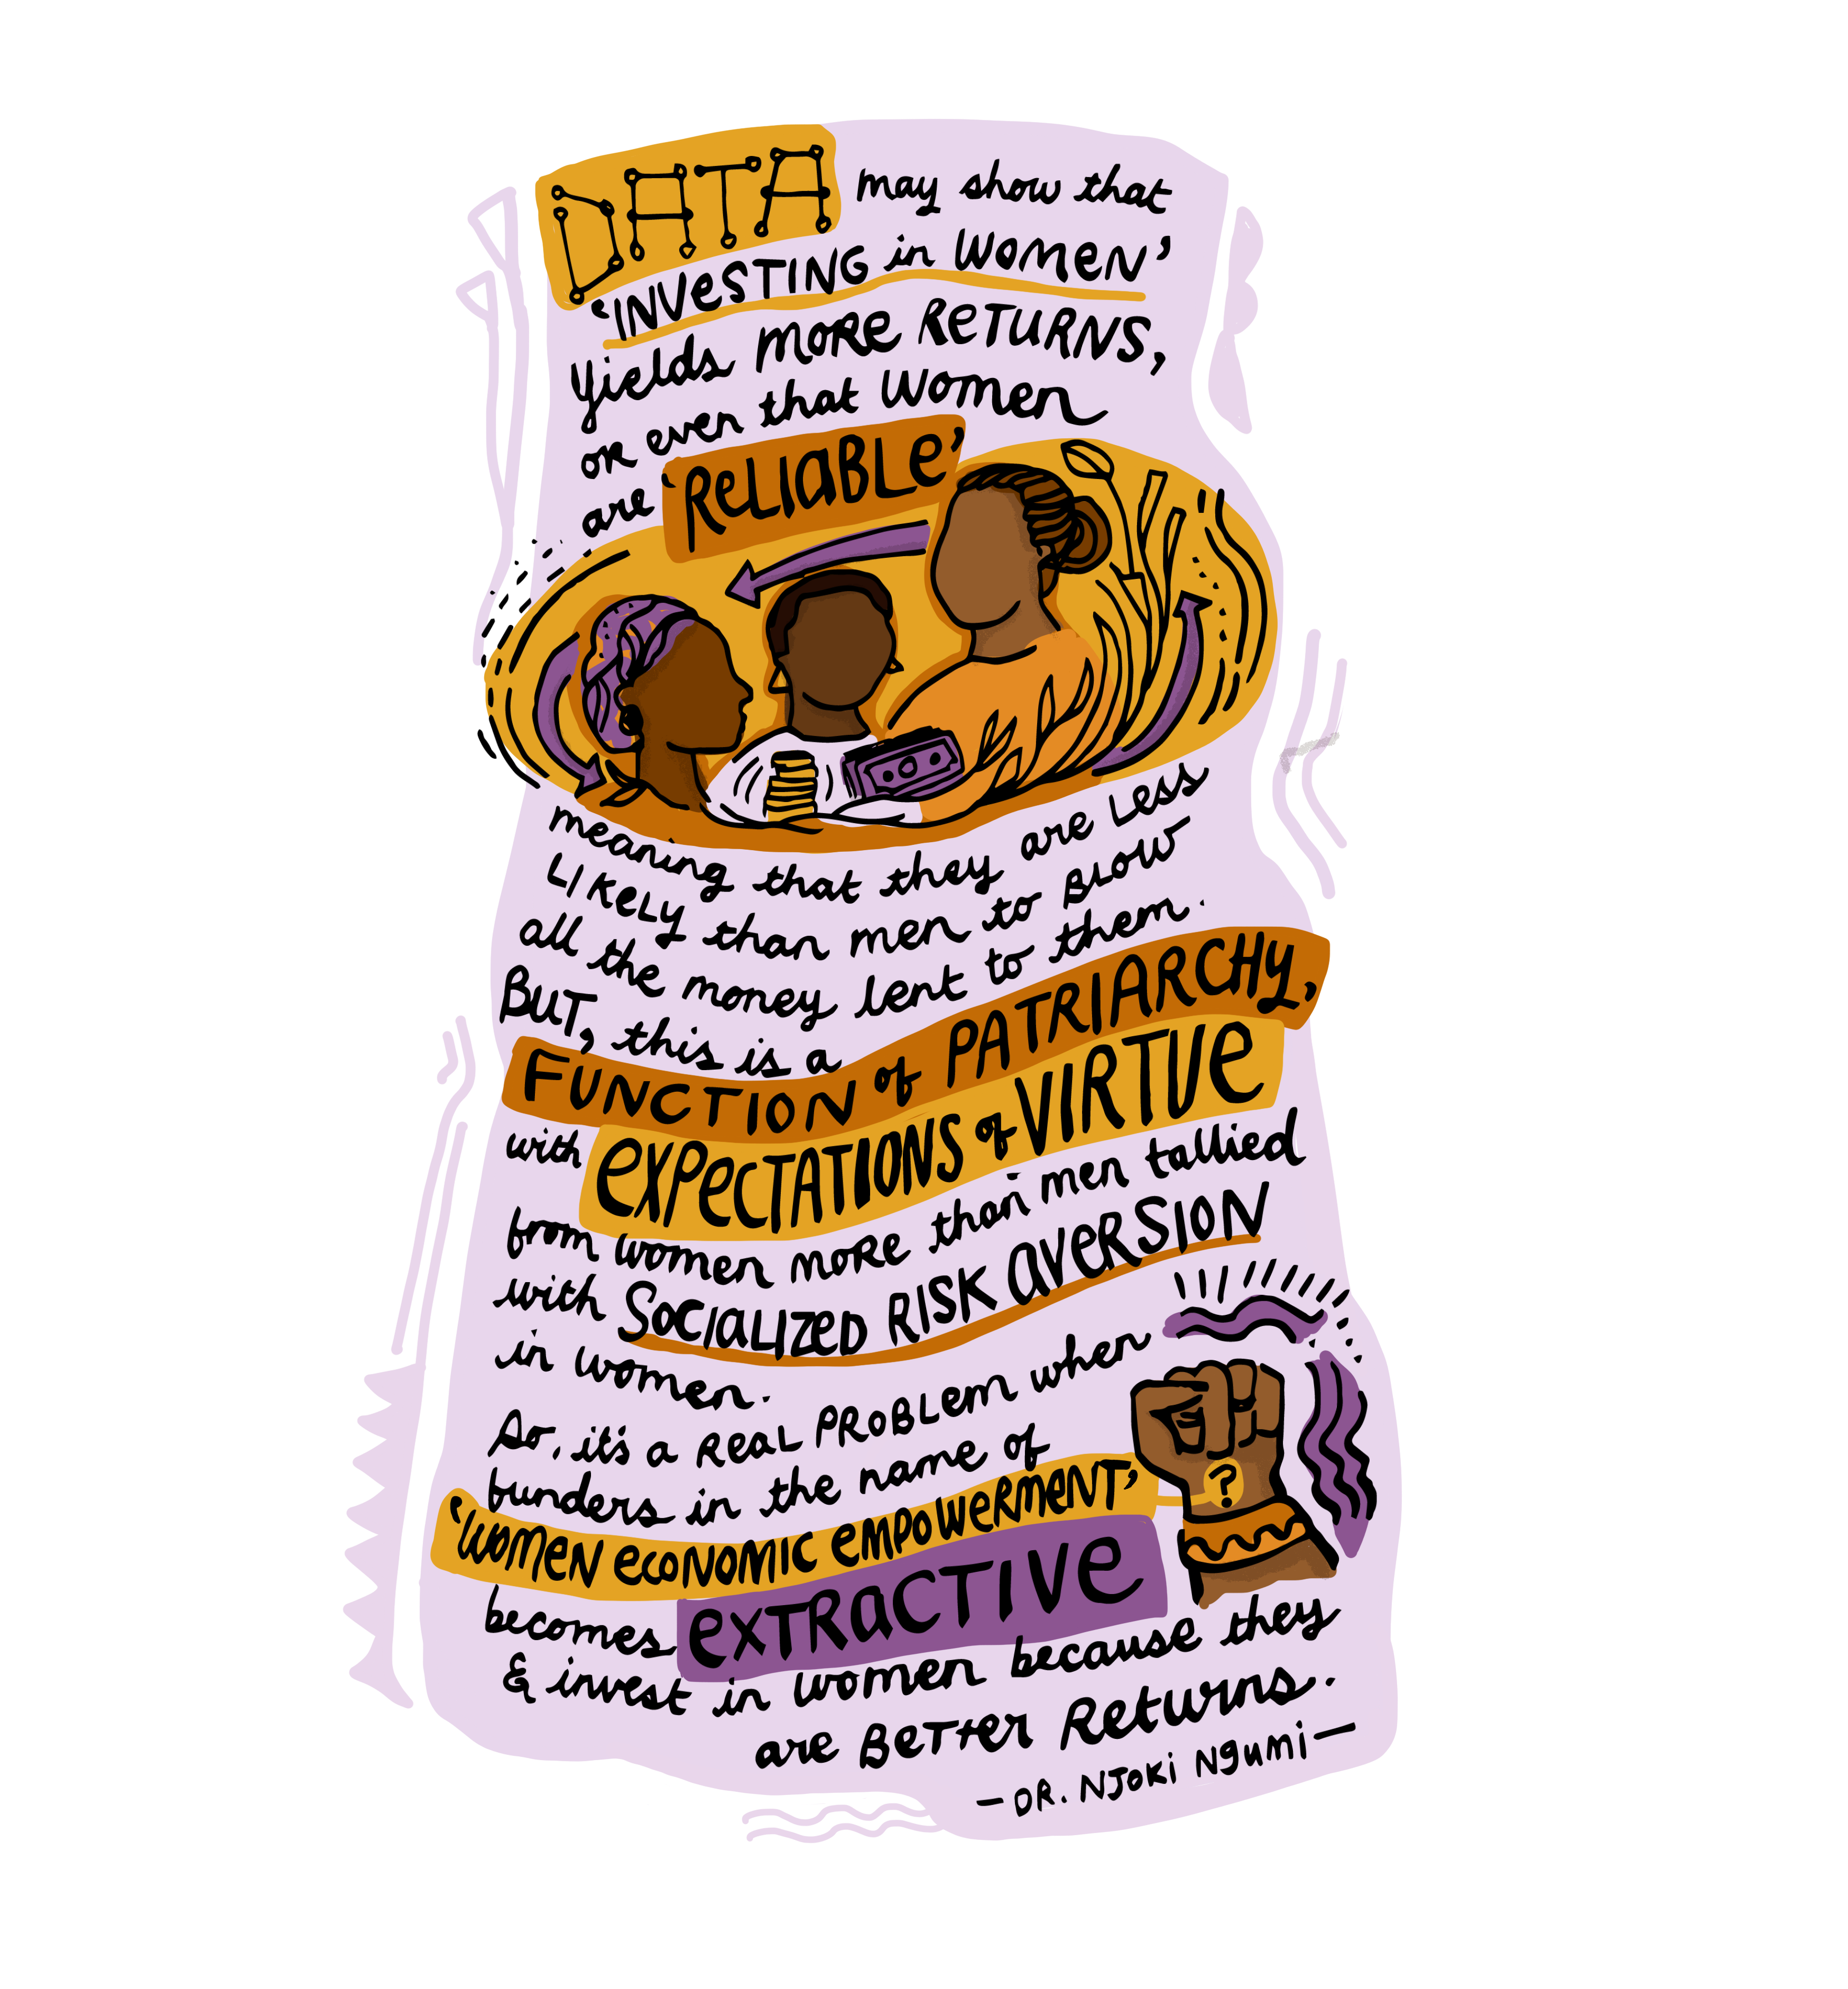 DATA may show that
'INVESTING in Women'
Yields MORE RETURNS,
or even that Women
are 'RELIABLE'
meaning that they are Less
Likely than men to Blow
all the money lent to them.
BUT, this is a
FUNCTION of PATRIARCHY,
with EXPECTATIONS of VIRTUE
from women more than men tallied
with SOCIALIZED RISK AVERSION
in women.
So, it's a REAL PROBLEM when
funders in the name of
'WOMEN ECONOMIC EMPOWERMENT'
?
becomes EXTRACTIVE
& invest in women because they
are BETTER Returns.
— DR. NJOKI NGUMI —